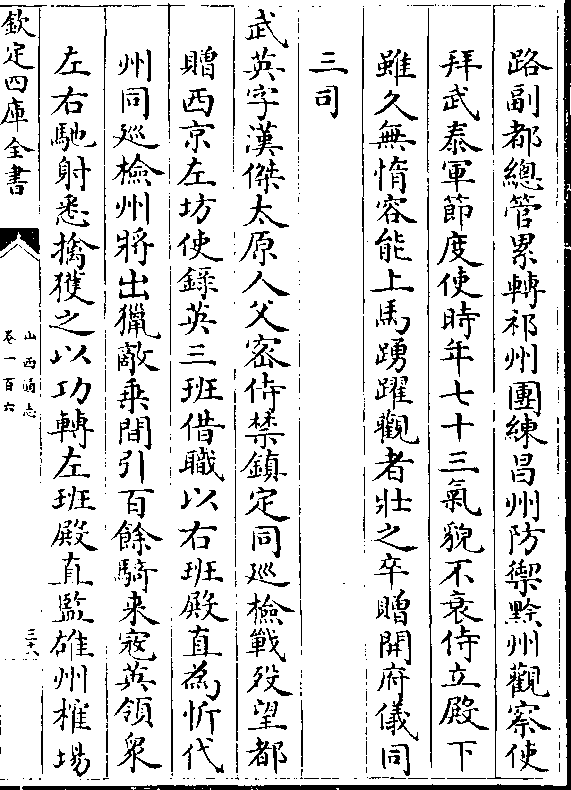 路副都總管累轉祁州團練昌州防禦黔州觀察使
拜武泰軍節度使時年七十三氣貌不衰侍立殿下
雖久無惰容能上馬踴躍觀者壯之卒贈開府儀同
三司
武英字漢傑太原人父密侍禁鎮定同巡檢戰歿望都
贈西京左坊使錄英三班借職以右班殿直為忻代
州同巡檢州將出獵敵乗間引百餘騎来寇英領衆
左右馳射悉擒獲之以功轉左班殿直監雄州榷場
欽定四庫全書
山西通志
卷一百六
三六